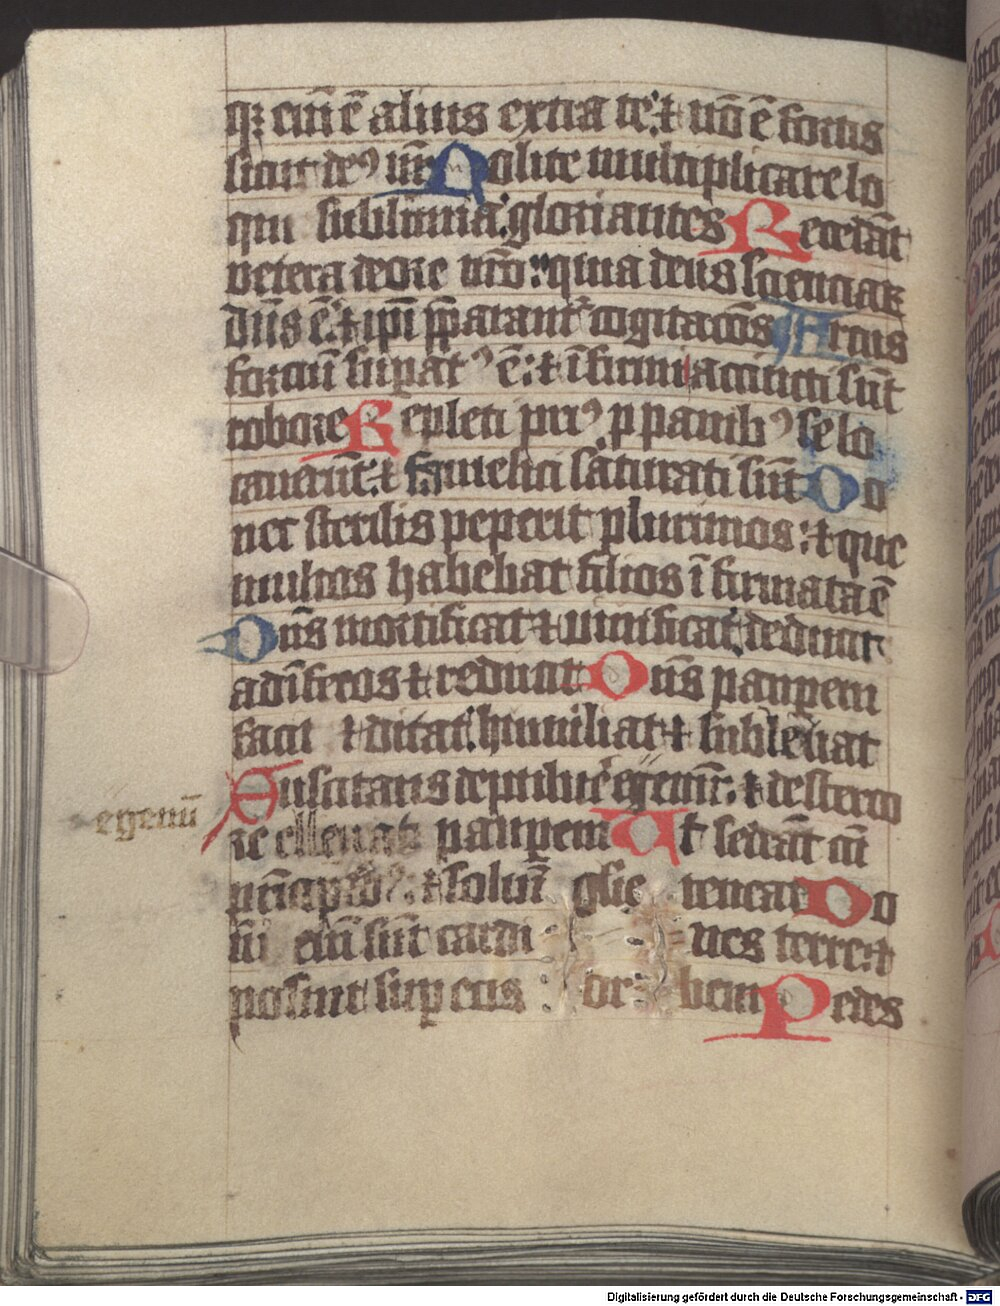 qꝫ eni͂ ē alius extra te: ⁊ nō ē fortis
sicut deꝰ nr̄ Nolite multiplicare lo
qui sublimia: gloriantes Recedāt
vetera de ore vr̄o: quia deus scienciaꝝ
dn̄s ē: ⁊ ip̄i p̄parant᷑ cogitacōes Arcus
forciū suꝑatꝰ ē: ⁊ ī firmi accincti sūt
robore Repleti priꝰ p panibꝰ se lo
cauerūt: ⁊ famelici saturati sūt Do
nec sterilis peperit plurimos: ⁊ que
multos habebat filios ī firmata ē
Dn̄s mortificat ⁊ viuificat: deducit
ad īferos ⁊ reducit Dn̄s pauperem
facit ⁊ ditat: humiliat ⁊ subleuat
Suscitans de puluē egenum: ⁊ de sterco
egenū
re elleuās pauperem Ut sedeāt cū
pn̄cipibꝰ: ⁊ soliū gl̄ie teneat Do
mi͂ eni͂ sūt cardi nes terre: ⁊
posuit suꝑ eos or bem Pedes
Digitalisierung gefördert durch die Deutsche Forschungsgemeinschaft - DFG